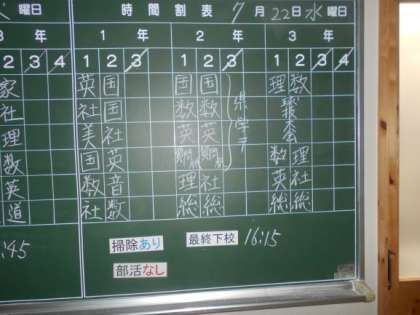 曜日 時間割表 7月22日水曜日
3年 1年 2年 3年
2 3 4 1 2 3 1 2 3 1 2 3 4
家 英 国 国 国 理 数
社 社 国 数 数
理 美 社 英 英
数 国 英 数 理
英 数 音 理 社 英 社
道 社 数 総 総 総 総
県学テ
:45
掃除あり 最終下校 16:15
部活なし